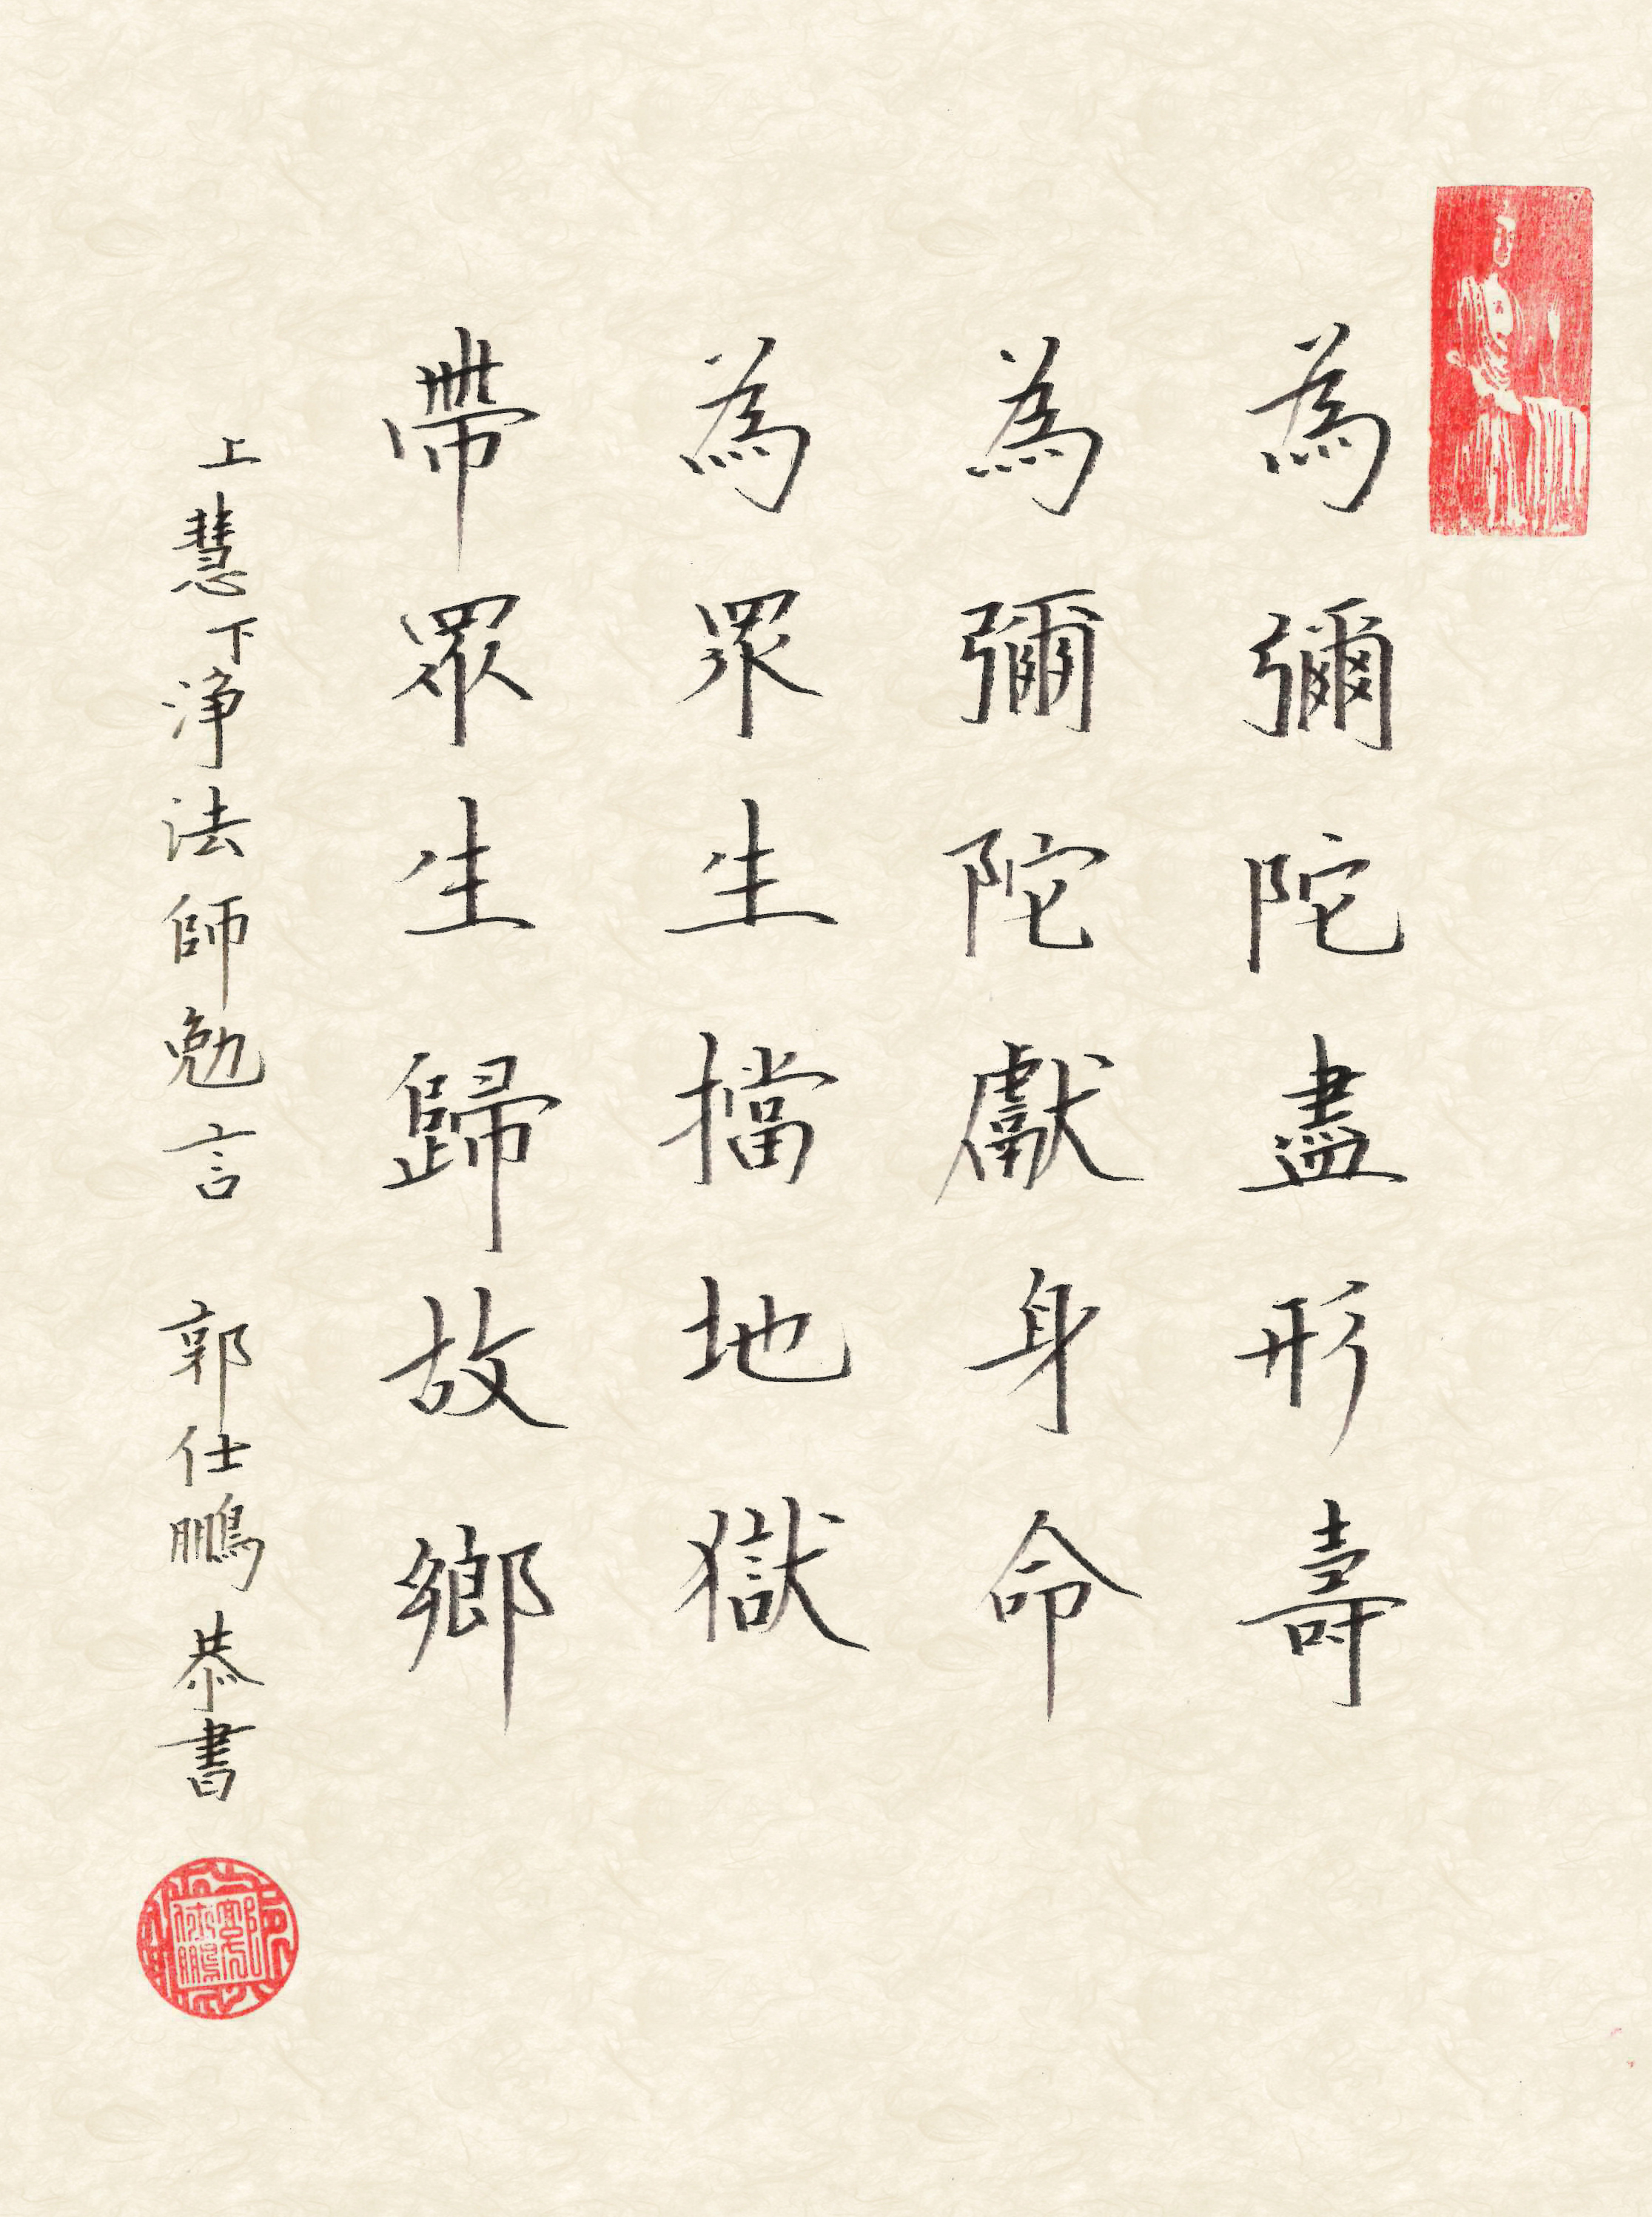 為彌陀盡形壽
為彌陀獻身命
為眾生擋地獄
帶眾生歸故鄉
上慧下淨法師勉言 郭仕鵬恭書